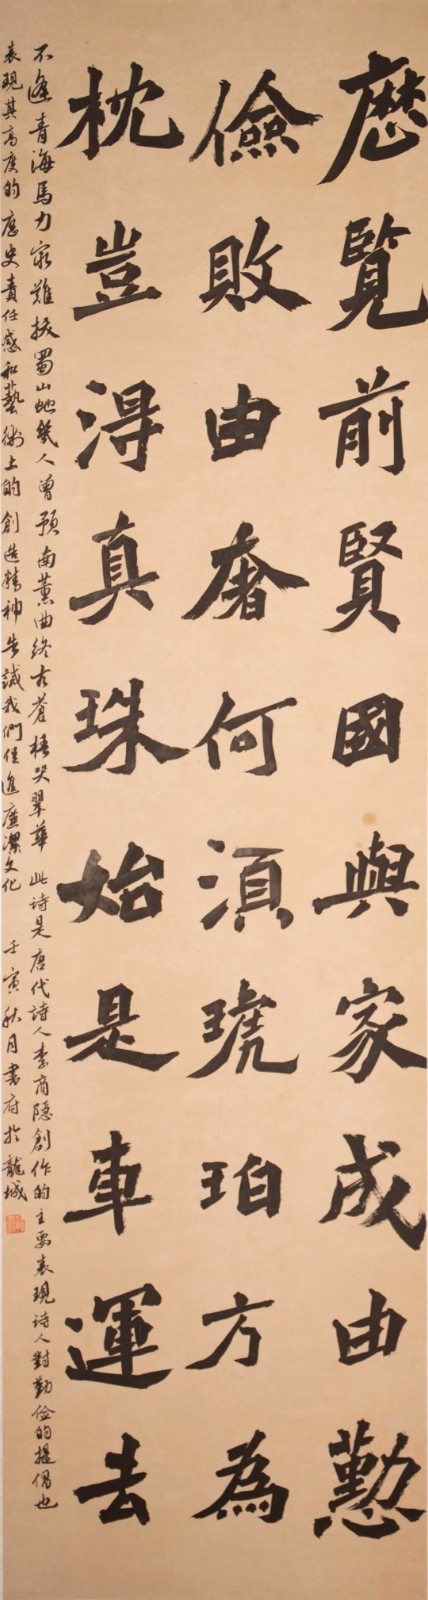 歷覽前賢國與家成由懃
儉敗由奢何須琥珀方為
枕豈得真珠始是車運去
不逢青海馬力窮難拔蜀山蛇幾人曾預南薰曲終古蒼梧哭翠華 此詩是唐代詩人李商隱創作的主要表現詩人對勤儉的提倡也
表現其高度的歷史責任感和藝術上的創造精神告誡我們促進廉潔文化 壬寅秋月書府於龍城